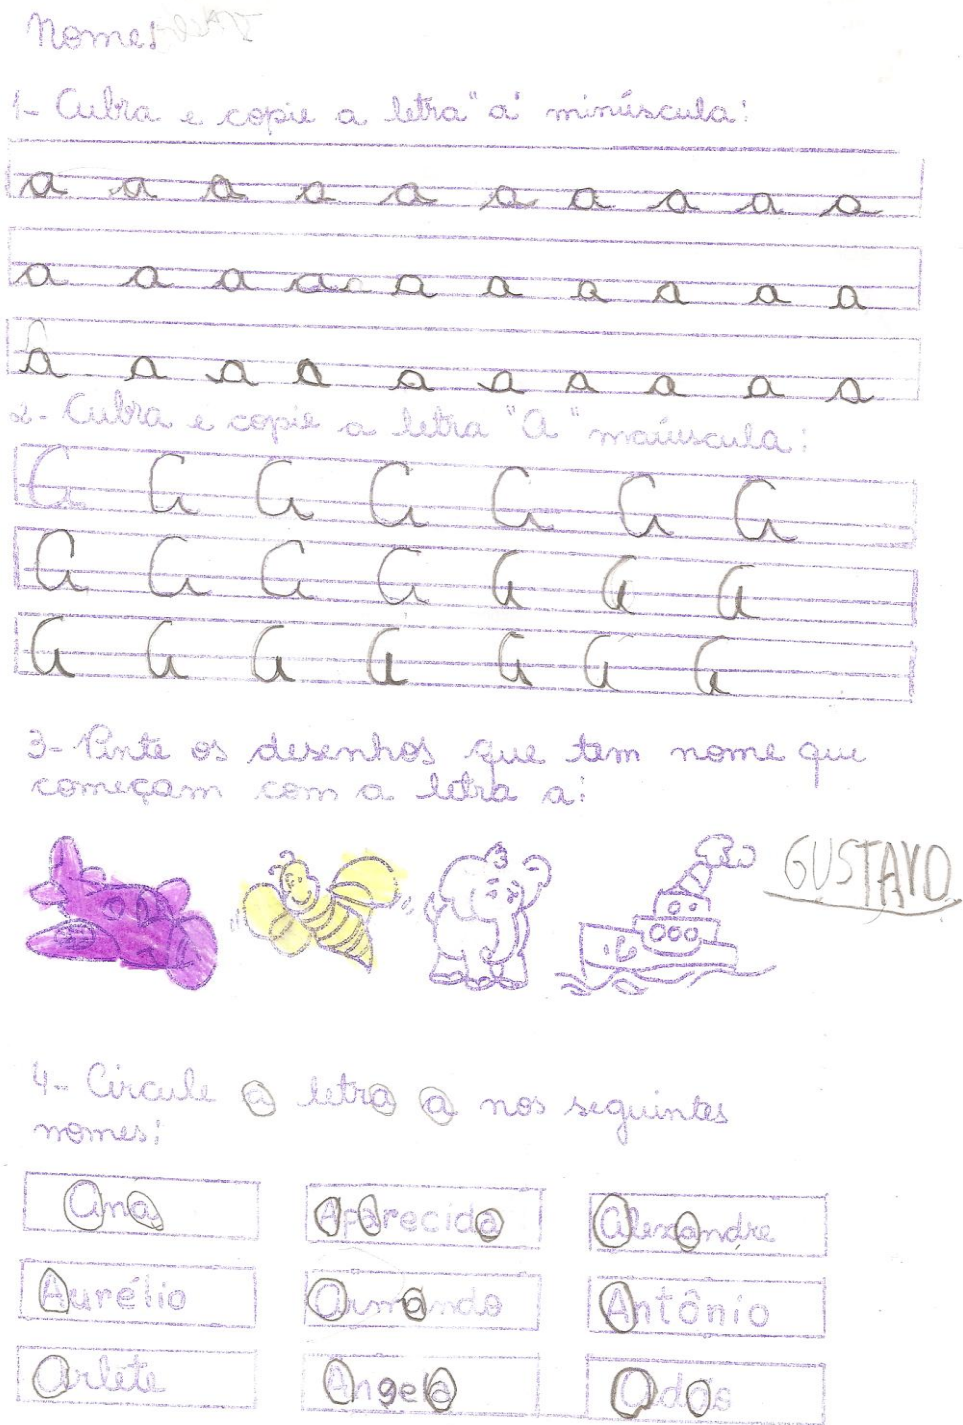 Nome:
1- Cubra e copie a letra "a" minúscula:
a a a a a a a a a a
a a a a a a a a a a
a a a a a a a a a a
2- Cubra e copie a letra "A" maiúscula:
A A A A A A A
A A A A A A A
A A A A A A A
3- Pinte os desenhos que tem nome que
começam com a letra a:
GUSTAVO
4- Circule a letra a nos seguintes
nomes:
Ana Aparecida Alexandre
Aurélio Armando Antônio
Arlete Angela Adão